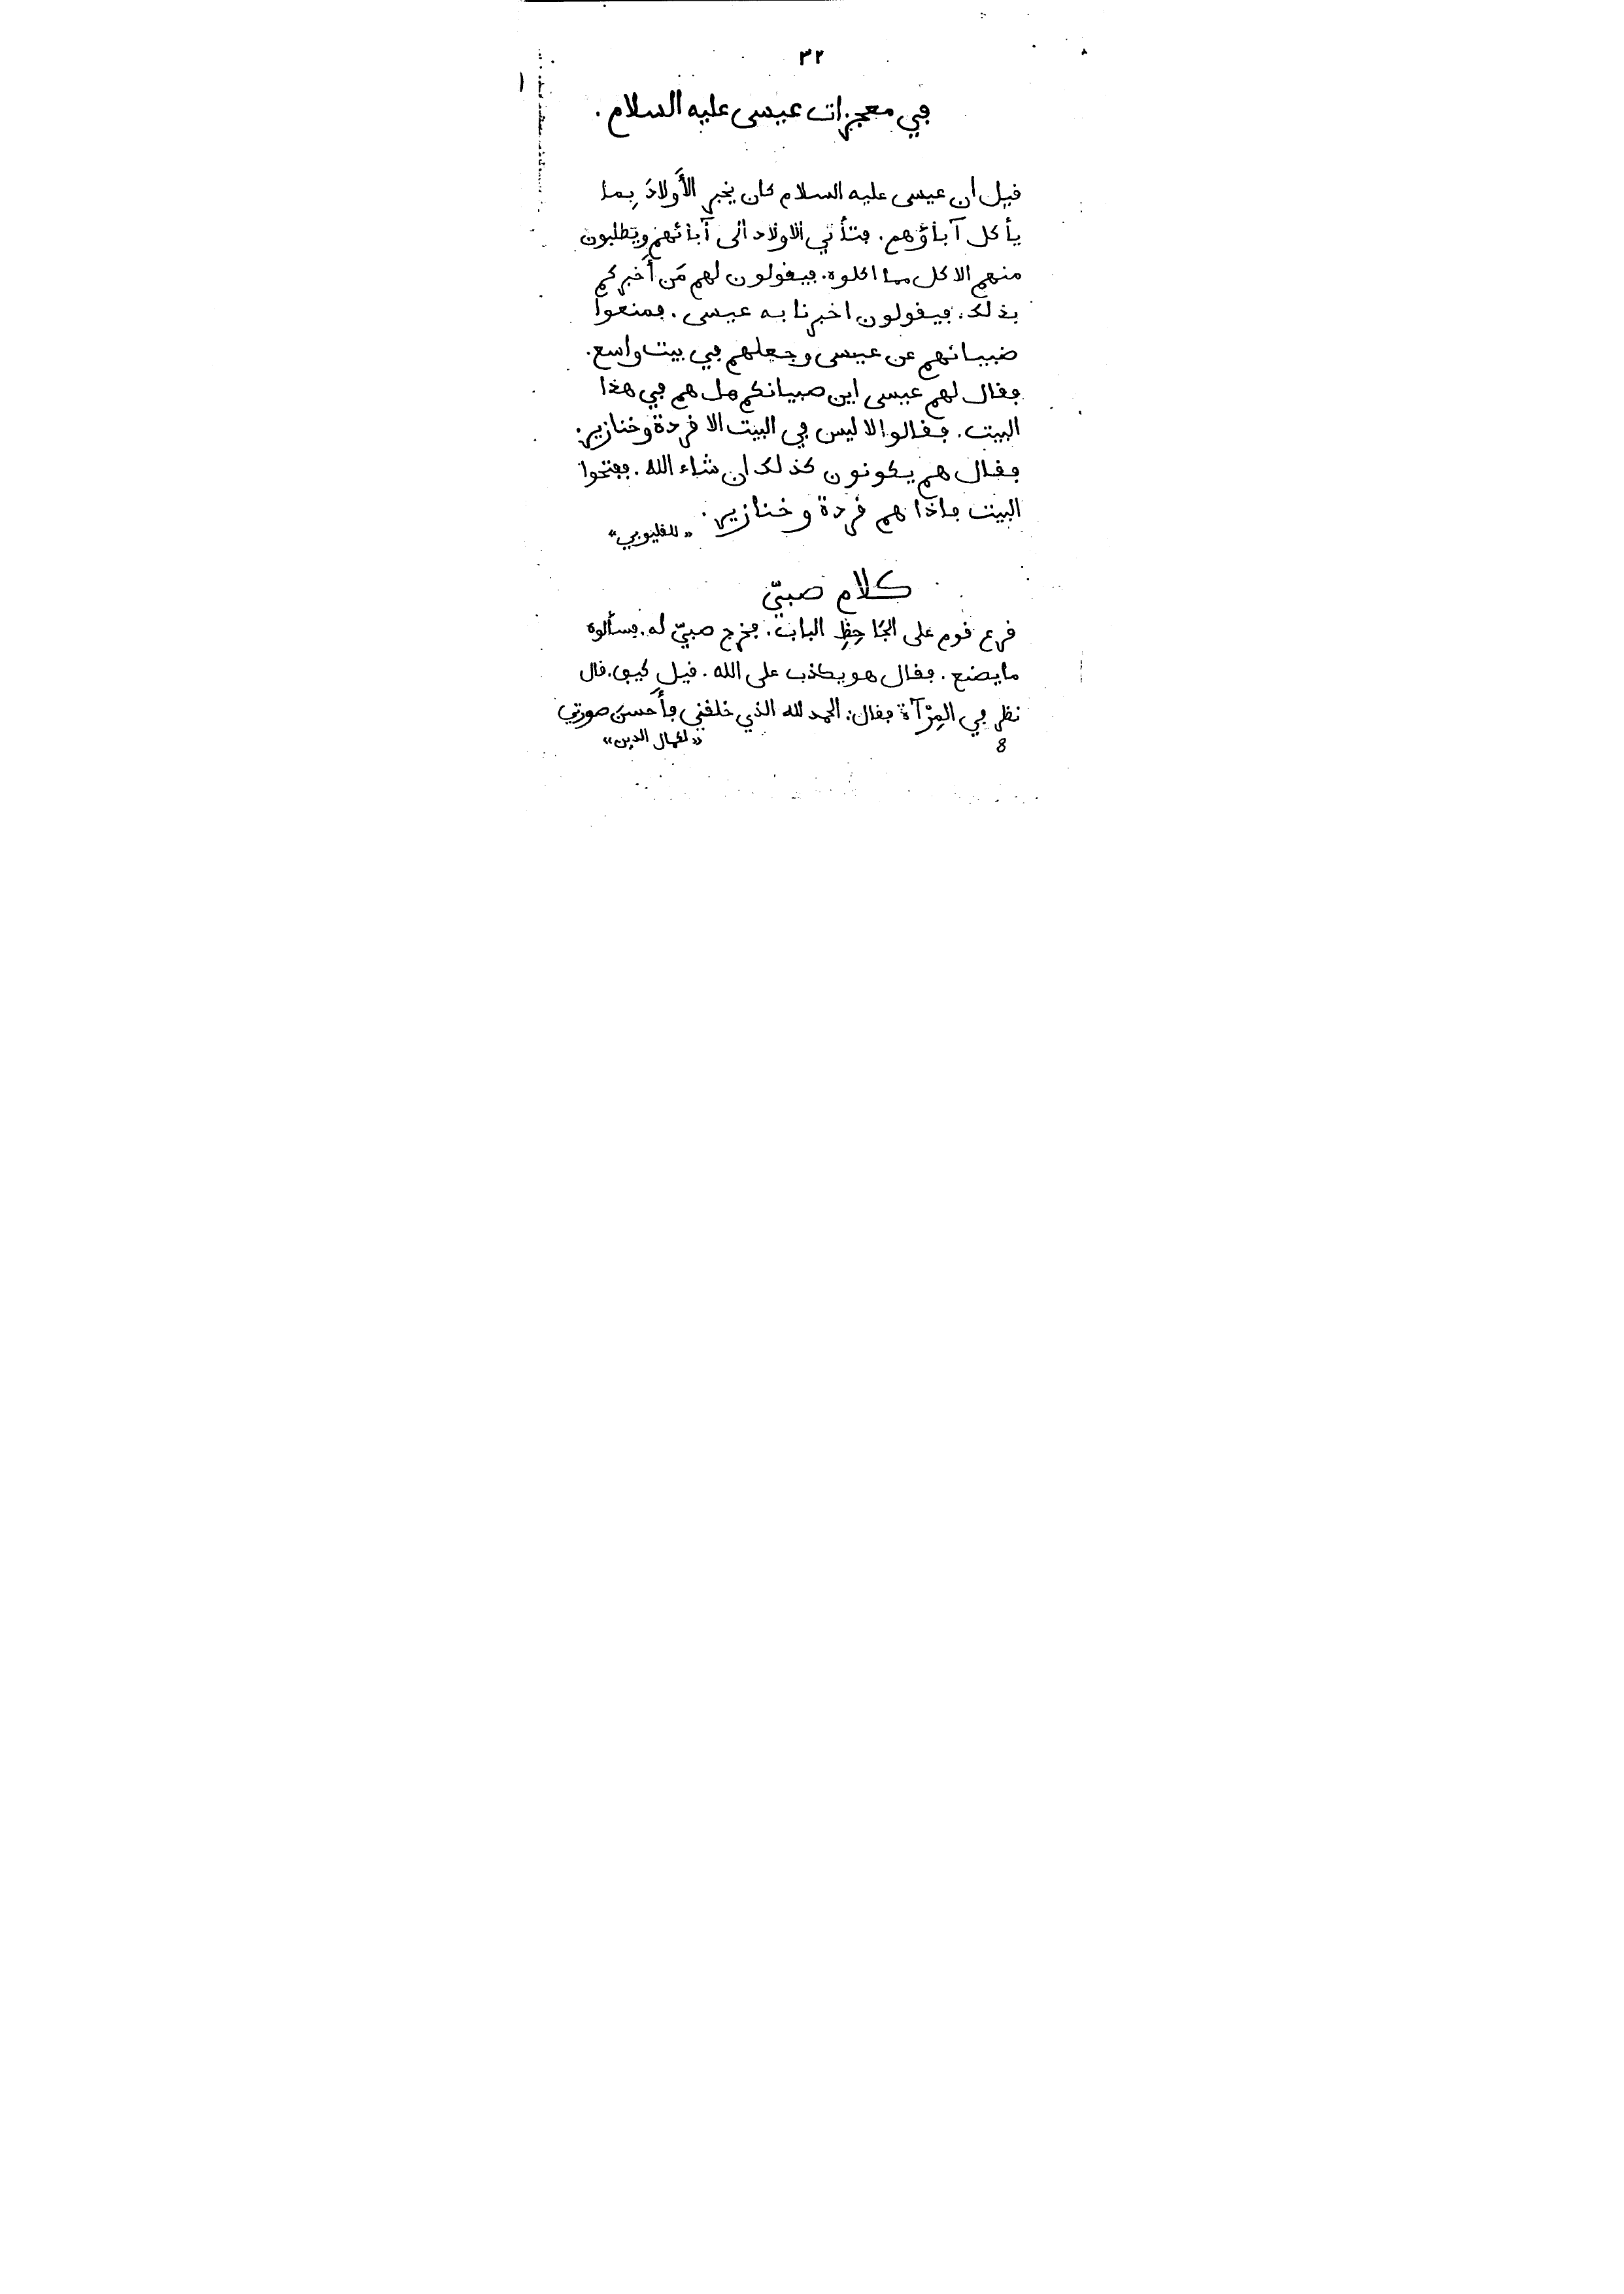 ٣٢
في معجزات عيسى عليه السلام.
قيل ان عيسى عليه السلام كان يخبر الأَولادَ بِما
يأكل آباؤهم. فتأتي الاولاد الى آبائهم ويطلبون
منهم الاكل مما اكلوه. فيقولون لهم مَن أَخبركم
بذلك. فيقولون اخبرنا به عيسى. فمنعوا
صبيانهم عن عيسى وجعلهم في بيت واسع.
فقال لهم عيسى اين صبيانكم هل هم في هذا
البيت. فقالوا لا ليس في البيت الا قردة وخنازير.
فقال هم يكونون كذلك ان شاء الله. ففتحوا
البيت فاذا هم قردة وخنازير.
«للقليوبي»
كلام صبيّ
قرع قوم على الجَاحِظِ الباب. فخرج صبيّ له. فسألوه
ما يصنع. فقال هو يكذب على الله. قيل كيف. قال
نظر في المِرْآة فقال: الحمد لله الذي خلقني فأَحسنَ صورتي
«لكمال الدين»
8